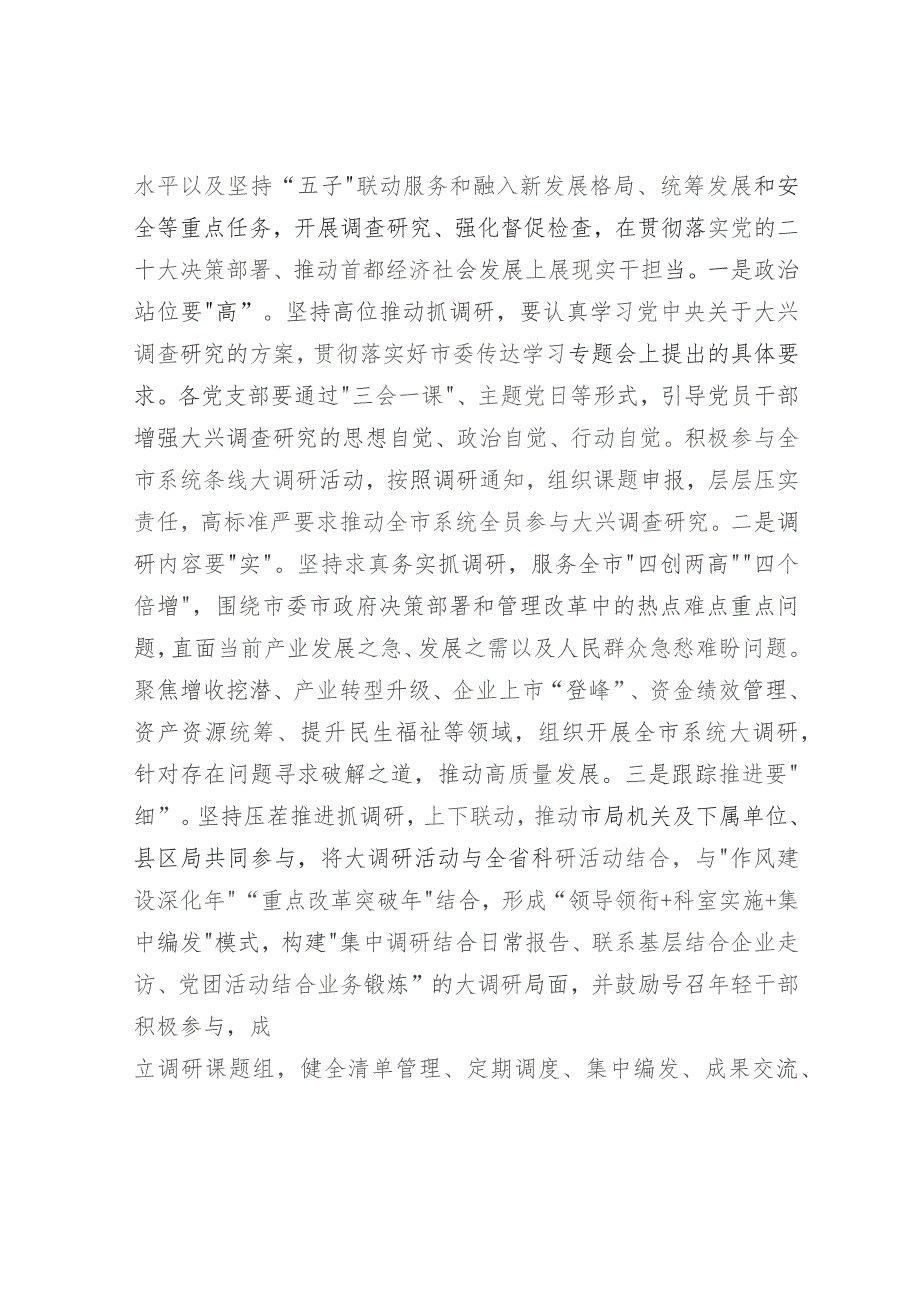 水平以及坚持“五子"联动服务和融入新发展格局、统筹发展和安
全等重点任务，开展调查研究、强化督促检查，在贯彻落实党的二
十大决策部署、推动首都经济社会发展上展现实干担当。一是政治
站位要"高”。坚持高位推动抓调研，要认真学习党中央关于大兴
调查研究的方案，贯彻落实好市委传达学习专题会上提出的具体要
求。各党支部要通过"三会一课"、主题党日等形式，引导党员干部
增强大兴调查研究的思想自觉、政治自觉、行动自觉。积极参与全
市系统条线大调研活动，按照调研通知，组织课题申报，层层压实
责任，高标准严要求推动全市系统全员参与大兴调查研究。二是调
研内容要"实"。坚持求真务实抓调研，服务全市"四创两高""四个
倍增"，围绕市委市政府决策部署和管理改革中的热点难点重点问
题，直面当前产业发展之急、发展之需以及人民群众急愁难盼问题。
聚焦增收挖潜、产业转型升级、企业上市“登峰”、资金绩效管理、
资产资源统筹、提升民生福祉等领域，组织开展全市系统大调研，
针对存在问题寻求破解之道，推动高质量发展。三是跟踪推进要"
细”。坚持压茬推进抓调研，上下联动，推动市局机关及下属单位、
县区局共同参与，将大调研活动与全省科研活动结合，与"作风建
设深化年"“重点改革突破年"结合，形成“领导领衔+科室实施+集
中编发"模式，构建"集中调研结合日常报告、联系基层结合企业走
访、党团活动结合业务锻炼”的大调研局面，并鼓励号召年轻干部
积极参与，成
立调研课题组，健全清单管理、定期调度、集中编发、成果交流、